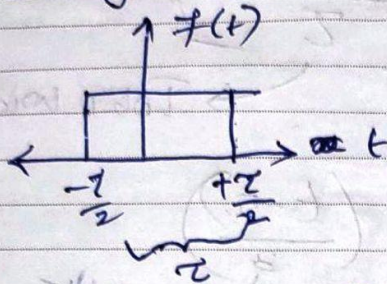 f(t)
t
-τ/2 +τ/2
τ